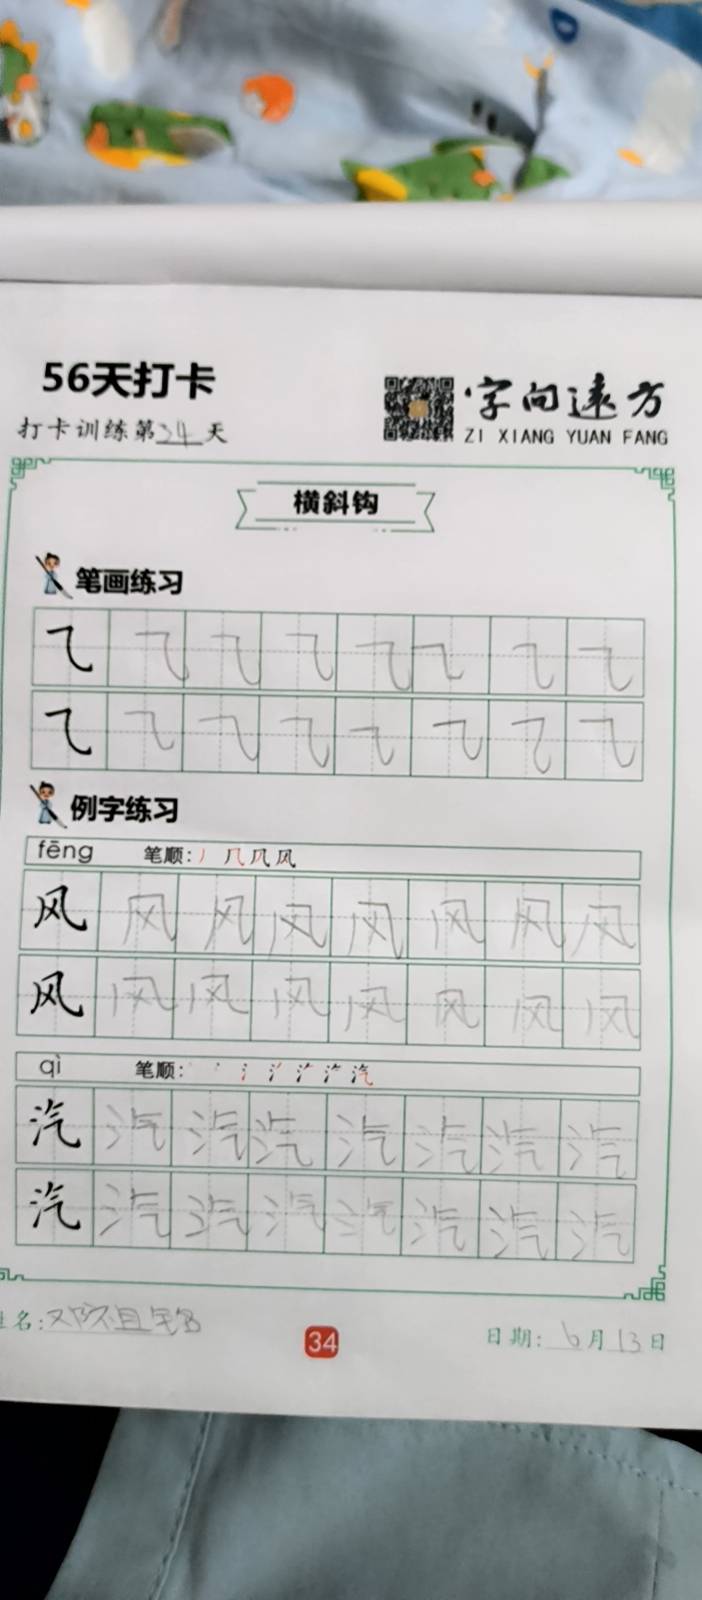 56天打卡
字向远方
打卡训练第34天
ZI XIANG YUAN FANG
横斜钩
笔画练习
⺄ ⺄ ⺄ ⺄ ⺄ ⺄ ⺄ ⺄
⺄ ⺄ ⺄ ⺄ ⺄ ⺄ ⺄ ⺄
例字练习
fēng 笔顺: 丿 几 风 风
风 风 风 风 风 风 风 风
风 风 风 风 风 风 风 风
qì 笔顺:
汽 汽 汽 汽 汽 汽 汽 汽
汽 汽 汽 汽 汽 汽 汽 汽
姓名:
34
日期: 6月13日